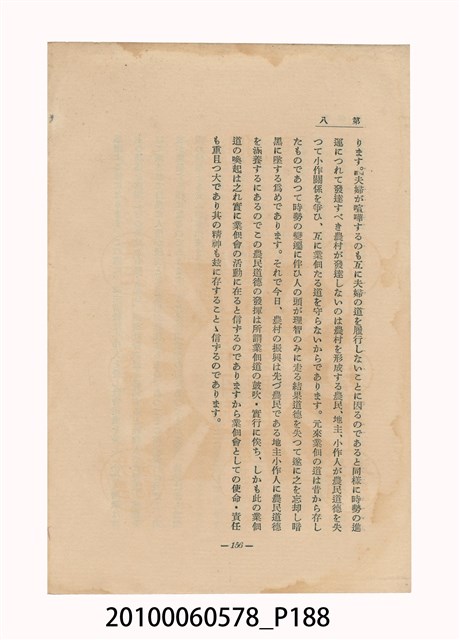 第八
ります。夫婦が喧嘩するのも互に夫婦の道を履行しないことに因るのであると同樣に時勢の進
運につれて發達すべき農村が發達しないのは農村を形成する農民、地主、小作人が農民道德を失
つて小作關係を爭ひ、互に業佃たる道を守らないからであります。元來業佃の道は昔から存し
たものであつて時勢の變遷に伴ひ人の頭が理智のみに走る結果道德を失つて遂に之を忘却し暗
黑に墜する爲めであります。それで今日、農村の振興は先づ農民である地主小作人に農民道德
を涵養するにあるのでこの農民道德の發揮は所謂業佃道の鼓吹・實行に俟ち、しかも此の業佃
道の喚起は之れ實に業佃會の活動に在ると信ずるのでありますから業佃會としての使命・責任
も重且つ大であり其の精神も玆に存することゝ信ずるのであります。
— 156 —
20100060578_P188